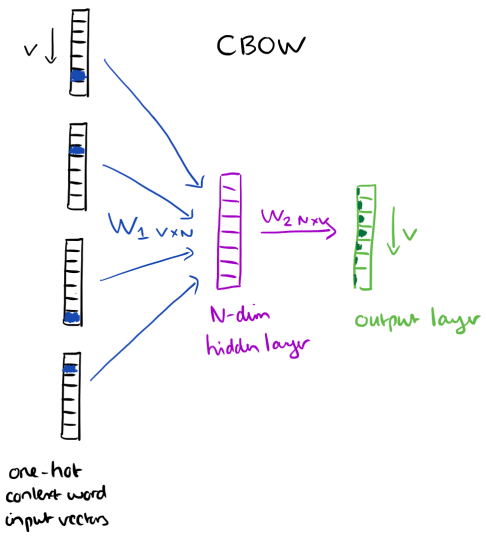 CBOW
V
W1 V×N
W2 N×V
V
N-dim
hidden layer
output layer
one-hot
context word
input vectors